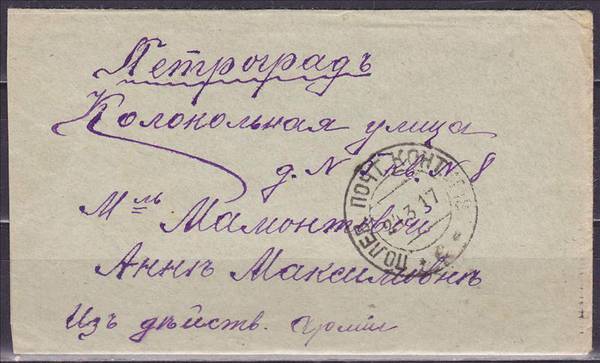 Петроградъ
Колокольная улица
д. N кв. N 8
М-ль Мамонтовой
Аннѣ Максимовнѣ
Изъ дѣйств. армiи
ПОЛЕВ. ПОЧТ. КОНТ
24.3.17